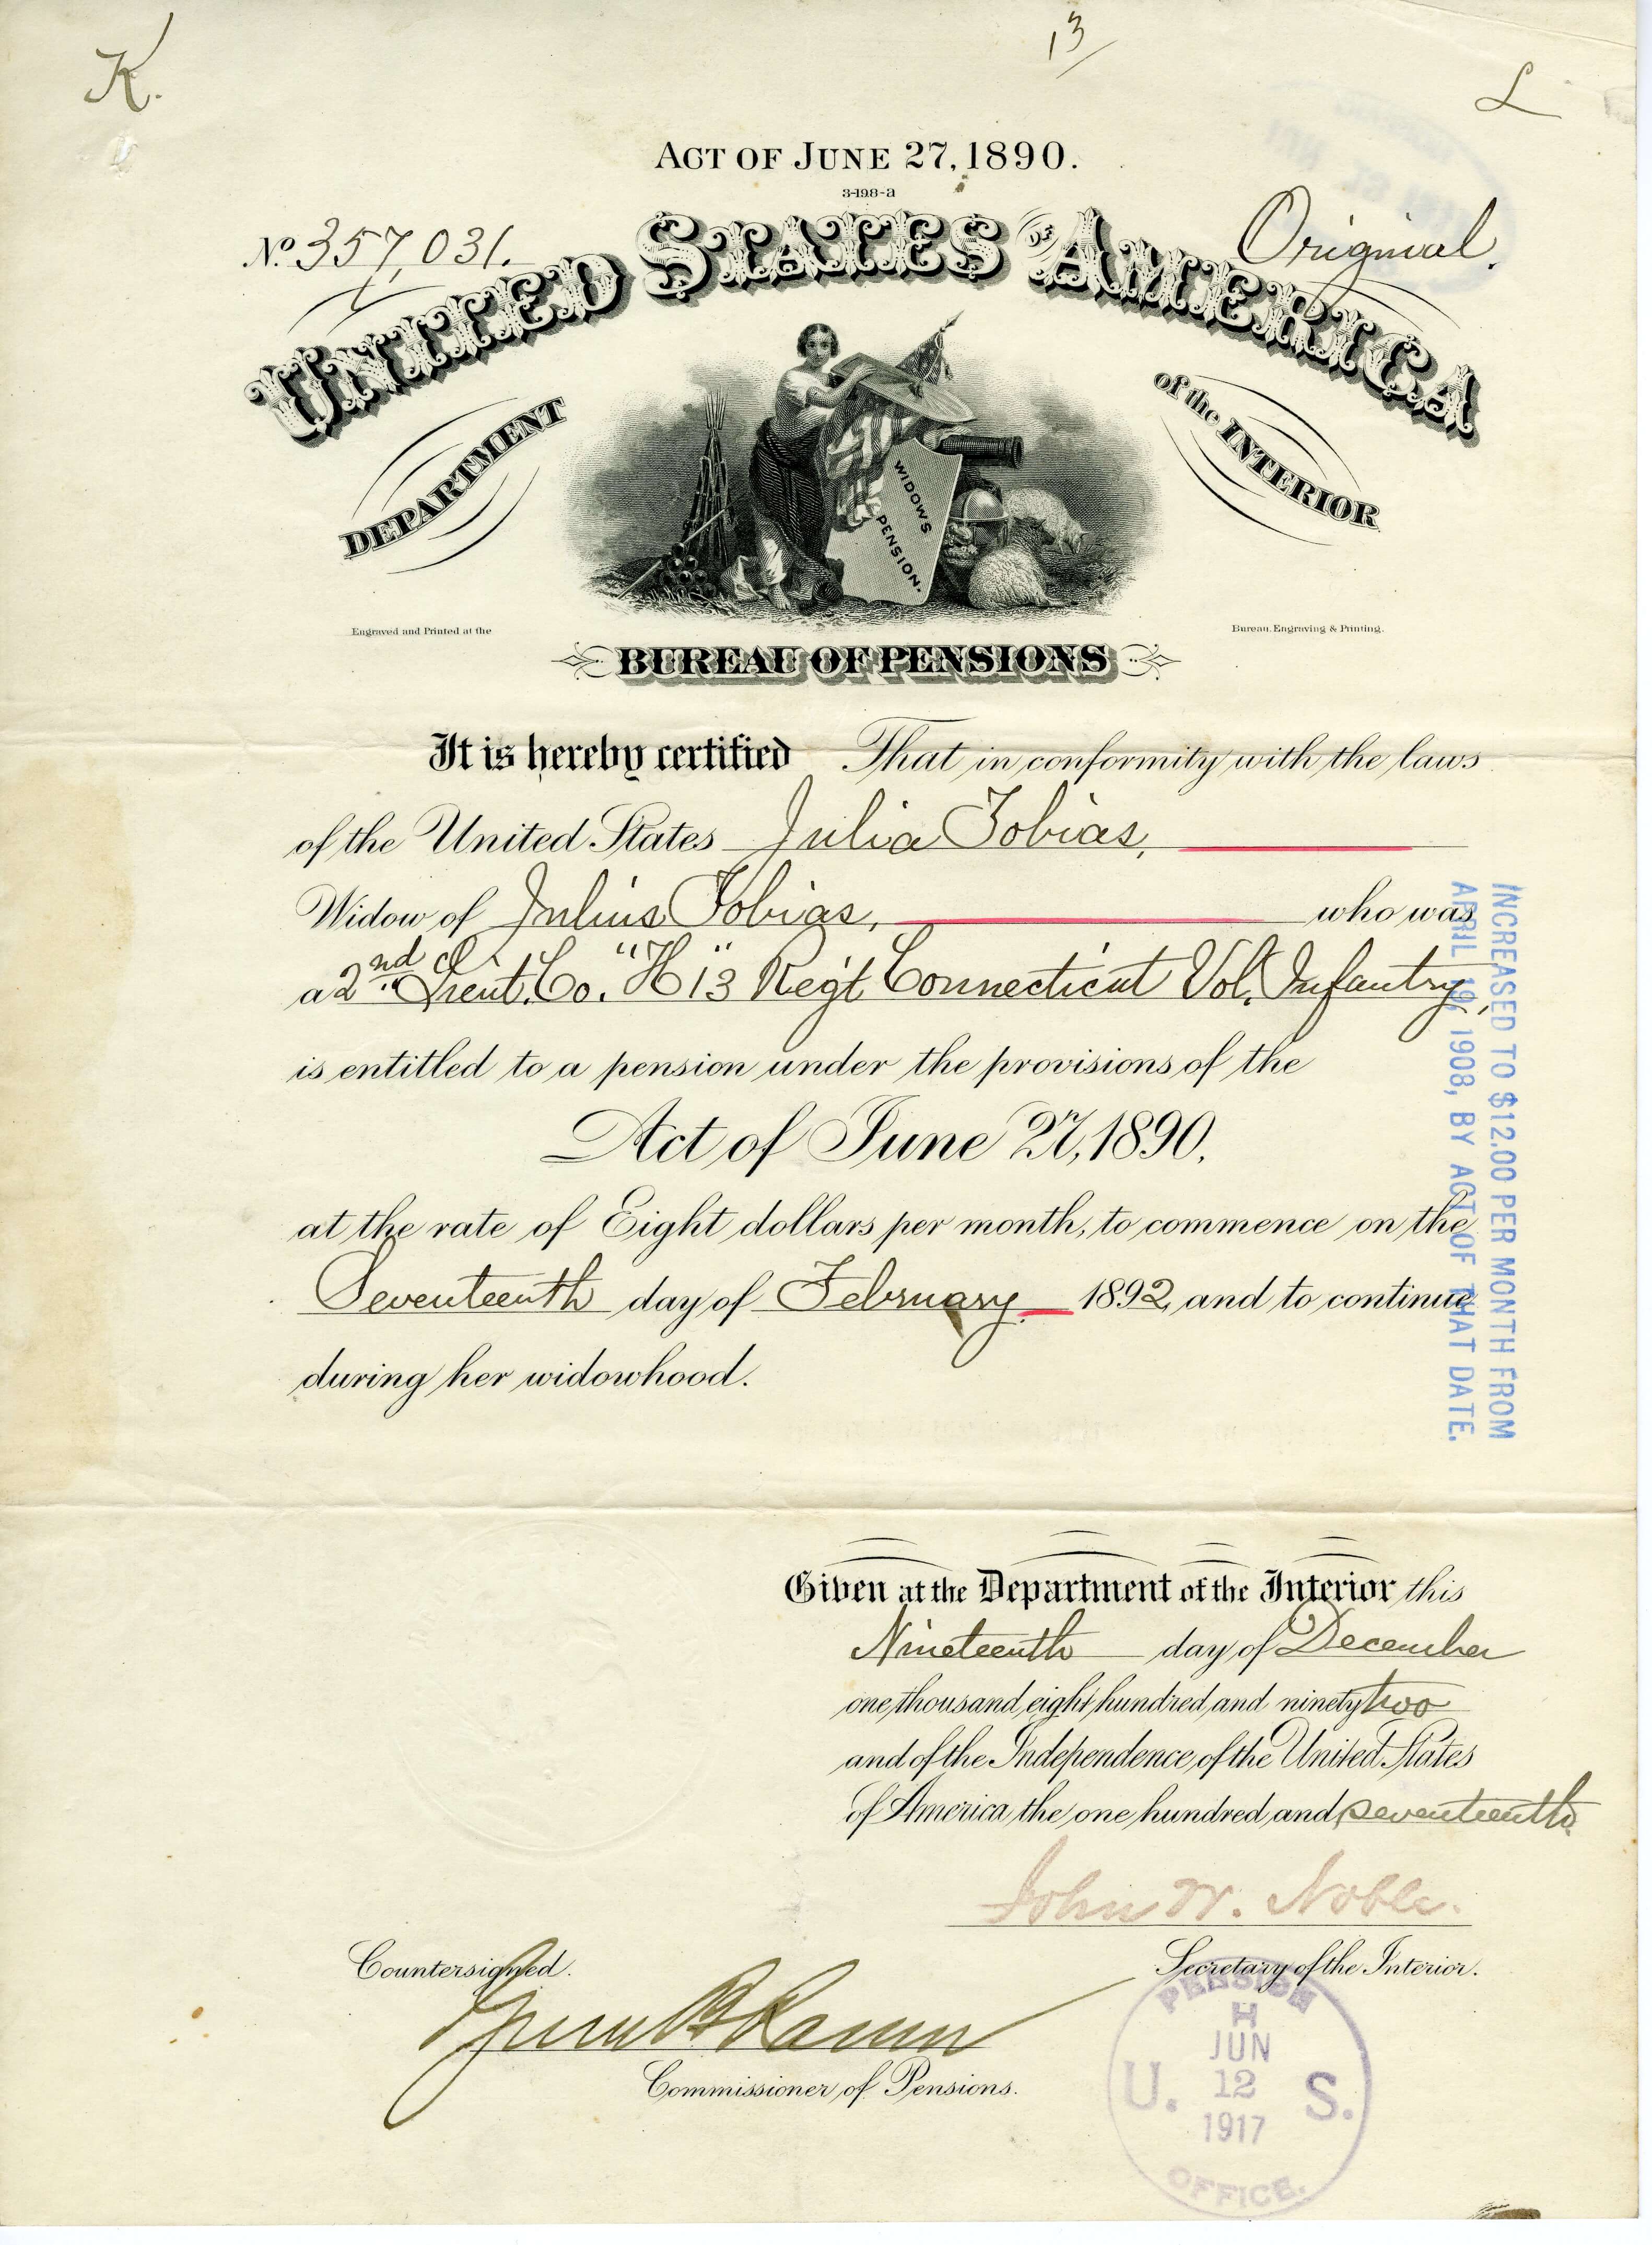 K.
13
L
ACT OF JUNE 27, 1890.
3-198-a
No. 357,031.
Original.
UNITED STATES OF AMERICA
DEPARTMENT of the INTERIOR
WIDOWS PENSION.
Engraved and Printed at the Bureau, Engraving & Printing.
BUREAU OF PENSIONS
It is hereby certified That in conformity with the laws
of the United States Julia Tobias,
Widow of Julius Tobias, who was
a 2nd Lieut. Co. "H" 13 Reg't Connecticut Vol. Infantry,
is entitled to a pension under the provisions of the
Act of June 27, 1890,
at the rate of Eight dollars per month, to commence on the
Seventeenth day of February 1892, and to continue
during her widowhood.
INCREASED TO $12.00 PER MONTH FROM
APRIL 19, 1908, BY ACT OF THAT DATE.
Given at the Department of the Interior this
Nineteenth day of December
one thousand eight hundred and ninety two
and of the Independence of the United States
of America the one hundred and seventeenth.
John W. Noble.
Secretary of the Interior.
Countersigned.
Commissioner of Pensions.
PENSION
H
JUN
12
1917
U. S.
OFFICE.